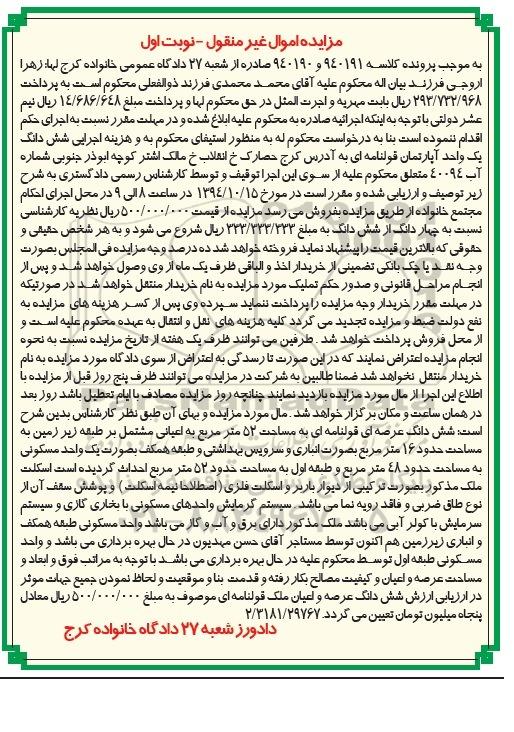 مزایده اموال غیر منقول – نوبت اول
به موجب پرونده کلاسه ۹۴۰۱۹۱ و ۹۴۰۱۹۰ صادره از شعبه ۲۷ دادگاه عمومی خانواده کرج لها: زهرا
اروجی فرزند بیان اله محکوم علیه آقای محمد محمدی فرزند ذوالفعلی محکوم است به پرداخت
۲۹۳/۷۳۲/۹۶۸ ریال بابت مهریه و اجرت المثل در حق محکوم لها و پرداخت مبلغ ۱۴/۶۸۶/۶۴۸ ریال نیم
عشر دولتی با توجه به اینکه اجرائیه صادره به محکوم علیه ابلاغ شده و در مهلت مقرر نسبت به اجرای حکم
اقدام ننموده است بنا به درخواست محکوم له به منظور استیفای محکوم به و هزینه اجرایی شش دانگ
یک واحد آپارتمان قولنامه ای به آدرس کرج حصارک خ انقلاب خ مالک اشتر کوچه ابوذر جنوبی شماره
آب ۴۰۰۹۴ متعلق محکوم علیه از سوی این اجرا توقیف و توسط کارشناس رسمی دادگستری به شرح
زیر توصیف و ارزیابی شده و مقرر است در مورخ ۱۳۹۴/۱۰/۱۵ در ساعت ۸ الی ۹ در محل اجرای احکام
مجتمع خانواده از طریق مزایده بفروش می رسد مزایده از قیمت ۵۰۰/۰۰۰/۰۰۰ ریال نظریه کارشناسی
نسبت به چهار دانگ از شش دانگ به مبلغ ۳۳۳/۳۳۳/۳۳۳ ریال شروع می شود و به هر شخص حقیقی و
حقوقی که بالاترین قیمت را پیشنهاد نماید فروخته خواهد شد ده درصد وجه مزایده فی المجلس بصورت
وجه نقد یا چک بانکی تضمینی از خریدار اخذ و الباقی ظرف یک ماه از وی وصول خواهد شد و پس از
انجام مراحل قانونی و صدور حکم تملیک مورد مزایده به نام خریدار منتقل خواهد شد در صورتیکه
در مهلت مقرر خریدار وجه مزایده را پرداخت ننماید سپرده وی پس از کسر هزینه های مزایده به
نفع دولت ضبط و مزایده تجدید می گردد کلیه هزینه های نقل و انتقال به عهده محکوم علیه است و
از محل فروش پرداخت خواهد شد . طرفین می توانند ظرف یک هفته از تاریخ مزایده نسبت به نحوه
انجام مزایده اعتراض نمایند که در این صورت تا رسدگی به اعتراض از سوی دادگاه مورد مزایده به نام
خریدار منتقل نخواهد شد ضمنا طالبین به شرکت در مزایده می توانند ظرف پنج روز قبل از مزایده با
اطلاع این اجرا از مال مورد مزایده بازدید نمایند چنانچه روز مزایده مصادف با ایام تعطیل باشد روز بعد
در همان ساعت و مکان برگزار خواهد شد . مال مورد مزایده و بهای آن طبق نظر کارشناس بدین شرح
است: شش دانگ عرصه ای قولنامه ای به مساحت ۵۲ متر مربع به اعیانی مشتمل بر طبقه زیر زمین به
مساحت حدود ۱۶ متر مربع بصورت انباری و سرویس بهداشتی و طبقه همکف بصورت یک واحد مسکونی
به مساحت حدود ۴۸ متر مربع و طبقه اول به مساحت حدود ۵۲ متر مربع احداث گردیده است اسکلت
ملک مذکور بصورت ترکیبی از دیوار باربر و اسکلت فلزی ( اصطلاحا نیمه اسکلت ) و پوشش سقف آن از
نوع طاق ضربی و فاقد رویه نما می باشد . سیستم گرمایش واحدهای مسکونی با بخاری گازی و سیستم
سرمایش با کولر آبی می باشد ملک مذکور دارای برق و آب و گاز می باشد واحد مسکونی طبقه همکف
و انباری زیرزمین هم اکنون توسط مستاجر آقای حسن مهدیون در حال بهره برداری می باشد و واحد
مسکونی طبقه اول توسط محکوم علیه در حال بهره برداری می باشد با توجه به مراتب فوق و ابعاد و
مساحت عرصه و اعیان و کیفیت مصالح بکار رفته و قدمت بنا و موقعیت و لحاظ نمودن جمیع جهات موثر
در ارزیابی ارزش شش دانگ عرصه و اعیان ملک قولنامه ای موصوف به مبلغ ۵۰۰/۰۰۰/۰۰۰ ریال معادل
پنجاه میلیون تومان تعیین می گردد. ۲/۳۱۸۱/۲۹۷۶۷
دادورز شعبه ۲۷ دادگاه خانواده کرج